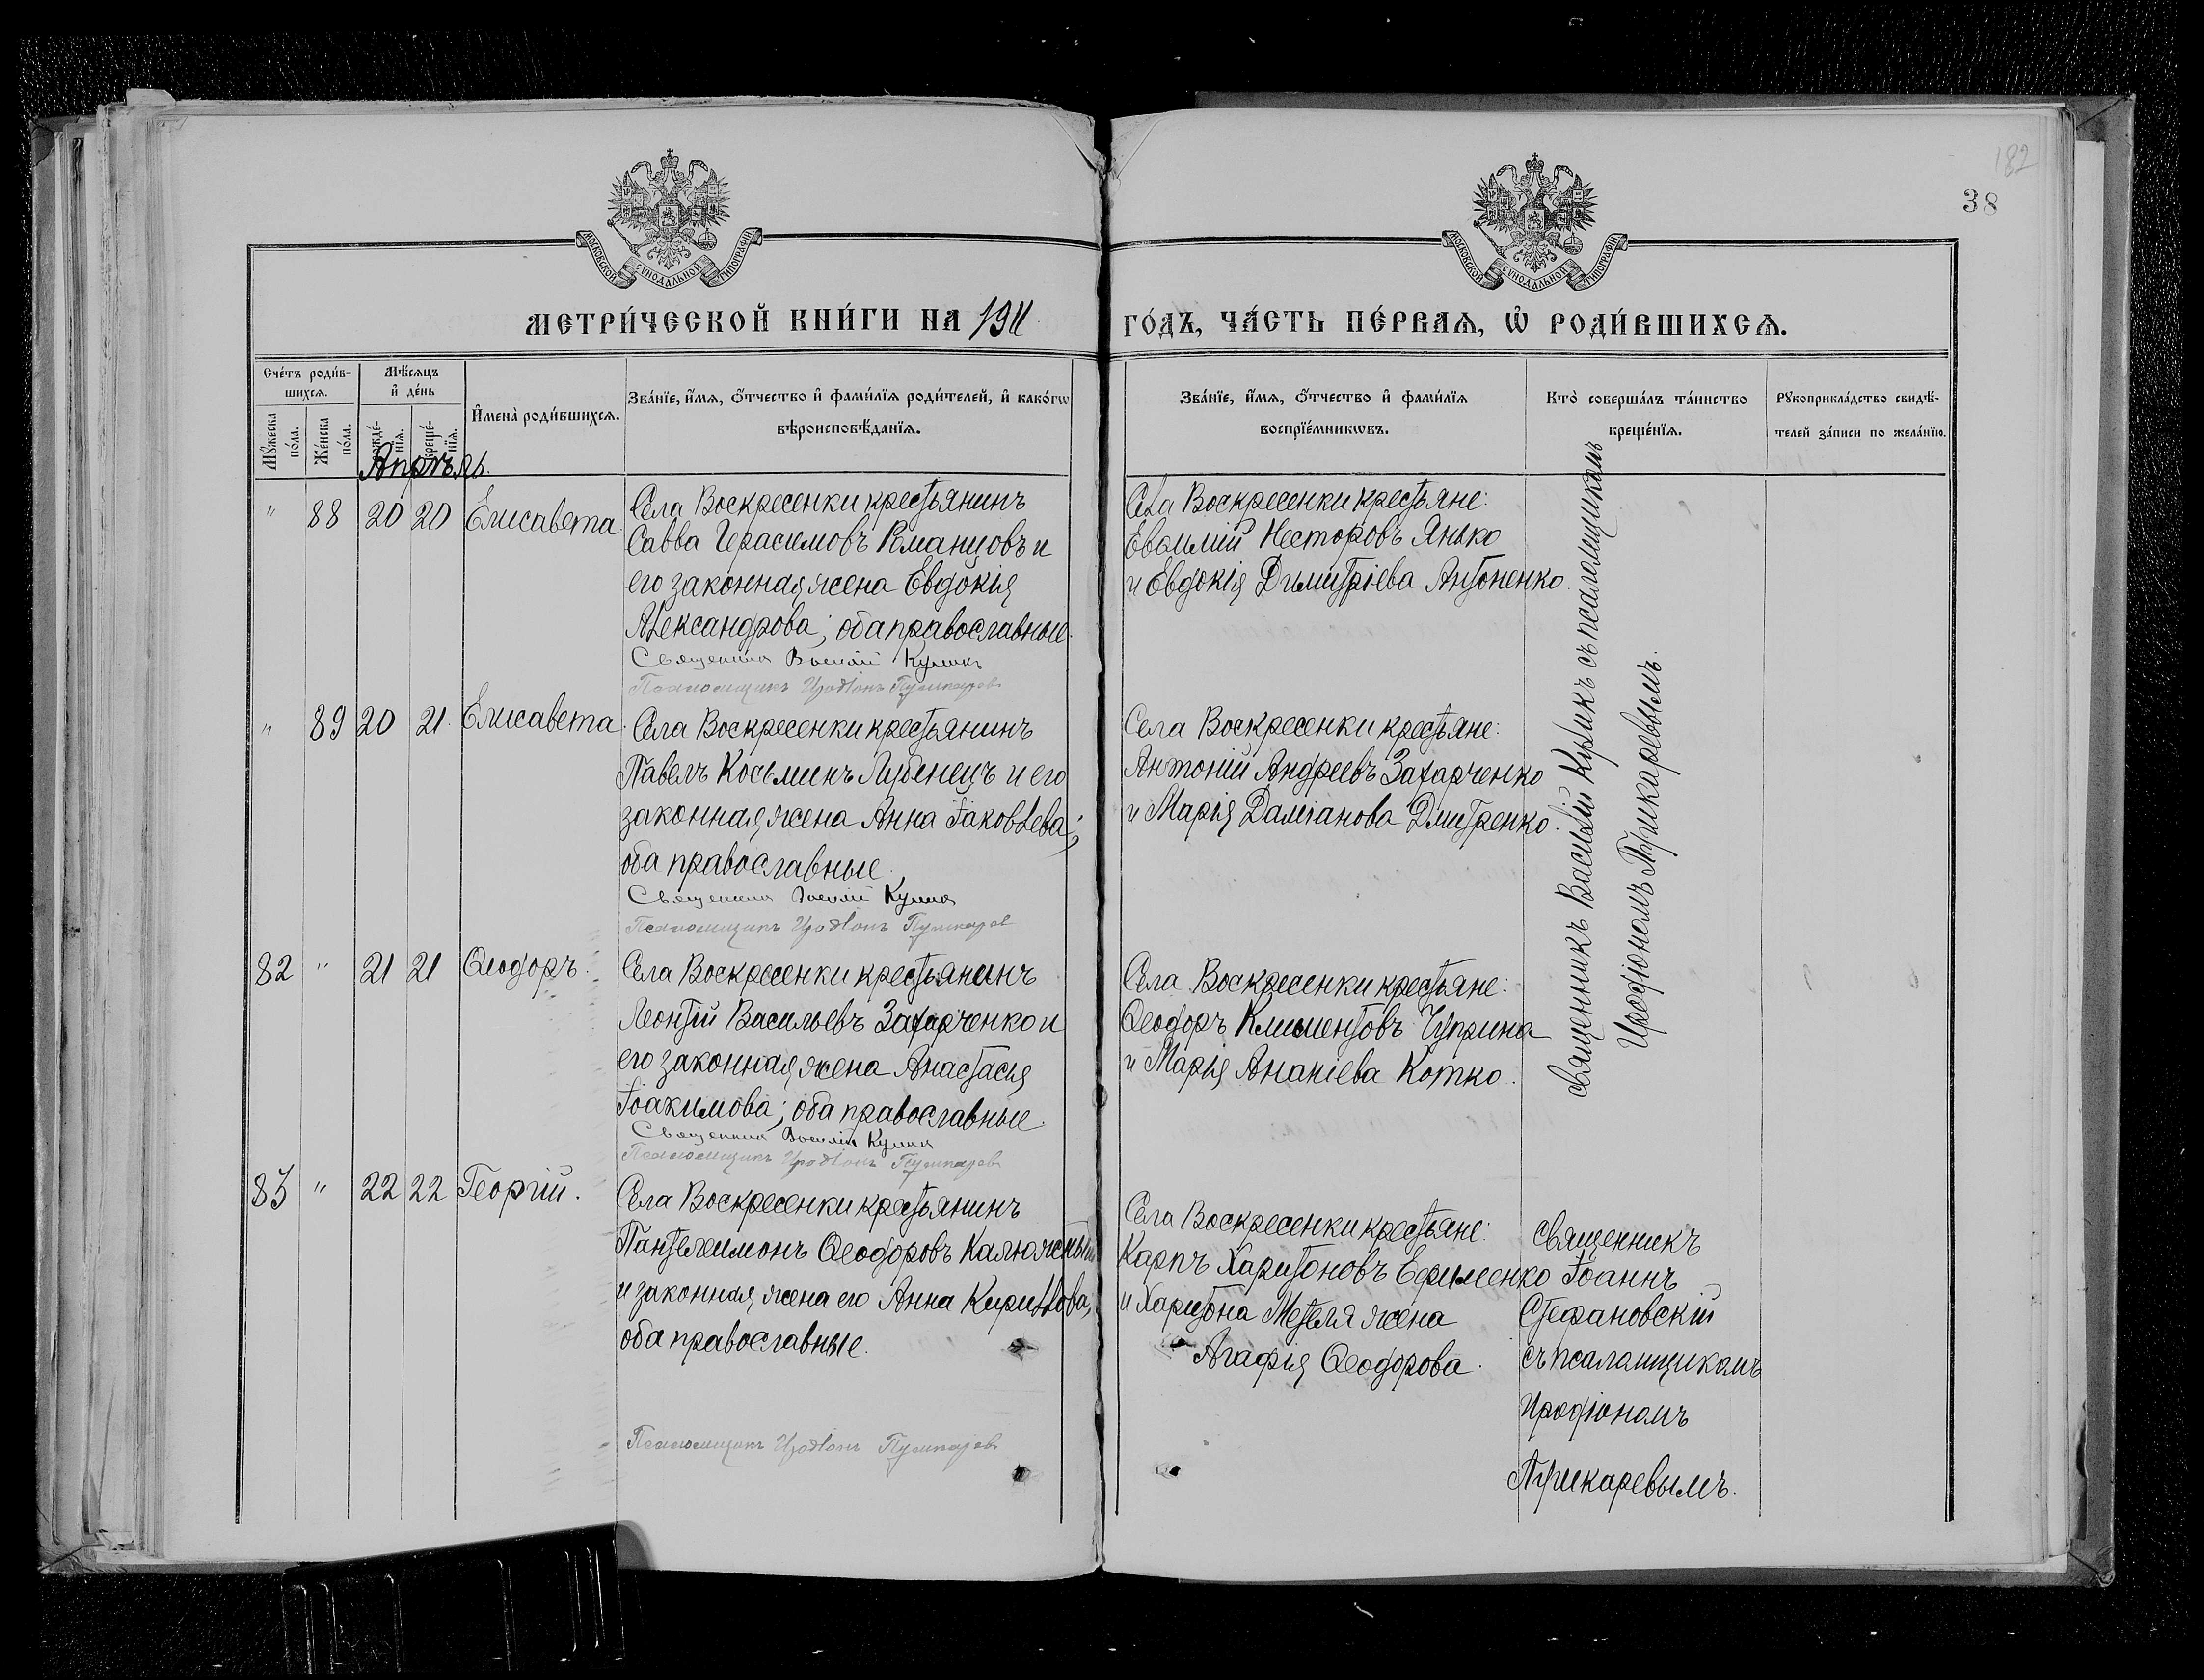 182
38
МОСКОВСКОЙ СѴНОДАЛЬНОЙ ТИПОГРАФІИ
МОСКОВСКОЙ СѴНОДАЛЬНОЙ ТИПОГРАФІИ
МЕТРИ́ЧЕСКОЙ КНИ́ГИ НА 1911
ГО́ДЪ, ЧА́СТЬ ПЕ́РВАѦ, Ѽ РОДИ́ВШИХСѦ.
Сче́тъ роди́в-
шихсѧ.
Мѣ́сѧцъ
и҆ де́нь
Мꙋ́жеска
по́ла.
Же́нска
по́ла.
рожде́-
нїѧ.
креще́-
нїѧ.
И҆мена̀ роди́вшихсѧ.
Зва́нїе, и҆́мѧ, ѻ҆́тчество и҆ фами́лїѧ роди́телей, и҆ како́гѡ
вѣроисповѣ́данїѧ.
Зва́нїе, и҆́мѧ, ѻ҆́тчество и҆ фами́лїѧ
воспрїе́мникѡвъ.
Кто̀ соверша́лъ та́инство
креще́нїѧ.
Рꙋкоприкла́дство свидѣ́-
телей за́писи по жела́нїю.
Апрѣль.
" 88 20 20 Елисавета.
Села Воскресенки крестьянинъ
Савва Герасимовъ Романцовъ и
его законная жена Евдокія
Александрова; оба православные.
Священникъ Василій Куликъ
Псаломщикъ Иродіонъ Пушкарев
Села Воскресенки крестьяне:
Евѳимій Несторовъ Янько
и Евдокія Димитріева Антоненко.
" 89 20 21 Елисавета.
Села Воскресенки крестьянинъ
Павелъ Косьминъ Лубенецъ и его
законная жена Анна Іаковлева;
оба православные.
Священникъ Василій Куликъ
Псаломщикъ Иродіонъ Пушкарев
Села Воскресенки крестьяне:
Антоній Андреевъ Захарченко
и Марія Даміанова Дмитренко.
82 " 21 21 Ѳеодоръ.
Села Воскресенки крестьянинъ
Леонтій Васильевъ Захарченко и
его законная жена Анастасія
Іоакимова; оба православные.
Священникъ Василій Куликъ
Псаломщикъ Иродіонъ Пушкарев
Села Воскресенки крестьяне:
Ѳеодоръ Климентовъ Чуприна
и Марія Ананіева Котко.
Священникъ Василій Куликъ съ псаломщикомъ
Иродіономъ Пушкаревымъ.
83 " 22 22 Георгій.
Села Воскресенки крестьянинъ
Пантелеимонъ Ѳеодоровъ Калюжный
и законная жена его Анна Кириллова,
оба православные.
Псаломщикъ Иродіонъ Пушкарев
Села Воскресенки крестьяне:
Карпъ Харитоновъ Ефименко
и Харитона Метеля жена
Агафія Ѳеодорова.
Священникъ
Іоаннъ
Стефановскій
съ псаломщикомъ
Иродіономъ
Пушкаревымъ.